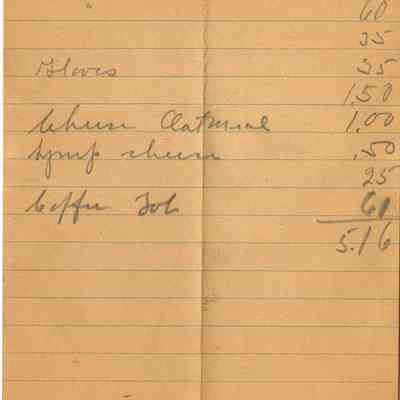 " 60
35
Gloves 35
1.50
Cheese Oatmeal 1.00
Syrup cheese .50
25
Coffee Tob 61
5.16